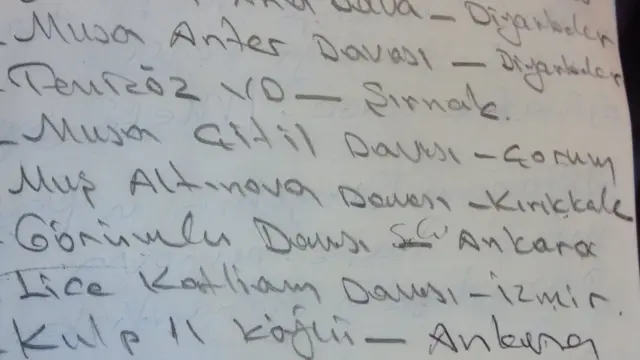 Ana Dava - Diyarbakır
- Musa Anter Davası - Diyarbakır
- Temizöz VD - Şırnak.
- Musa Çitil Davası - Çorum
Muş Altınova Davası - Kırıkkale
- Görümlü Davası - Ankara
- Lice Katliam Davası - İzmir.
- Kulp 11 Köylü - Ankara